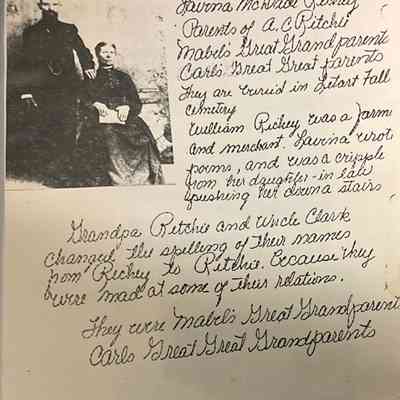 Lavina McDade Richey
Parents of A.C Ritchie
Mabel's Great Grand parents
Carls Great Great parents
They are buried in Letart Fall
cemetery
William Richey was a farm
and merchant. Lavina wrote
poems, and was a cripple
from her daughter-in law
pushing her down a stairs
Grandpa Ritchie and Uncle Clark
changed the spelling of their names
from Richey to Ritchie. because they
were mad at some of their relations.
They were Mabel's Great Grandparent
Carls Great Great Grandparents